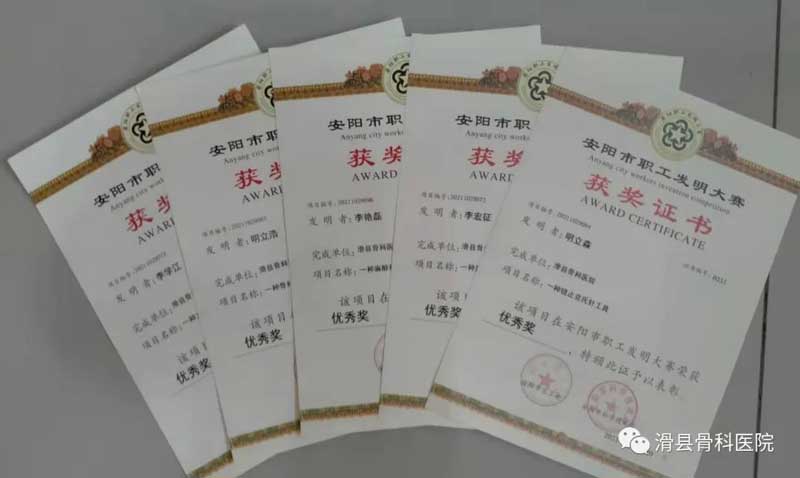 安阳市职
Anyang city work
获奖
AWARD
项目编号：20211020073
发 明 者：李学江
完成单位：滑县
项目名称：一种
该项目
优秀奖
安阳市职
Anyang city work
获奖
AWARD
发 明 者：明立浩
完成单位：滑县骨
项目名称：一种骨
该项目
优秀奖
安阳市职
Anyang city wor
获奖
AWARD
发 明 者：李艳磊
完成单位：滑县骨科医
项目名称：一种
该项目在
优秀奖
安阳市职
Anyang city work
获奖
AWARD
发 明 者：李宏征
完成单位：滑县骨
项目名称：一种
该项目
优秀奖
安阳市职工发明大赛
Anyang city workers invention competition
获奖证书
AWARD CERTIFICATE
发 明 者：明立森
完成单位：滑县骨科医院
项目名称：一种锁止克氏针工具
该项目在安阳市职工发明大赛荣获
优秀奖，特颁此证予以表彰。
滑县骨科医院